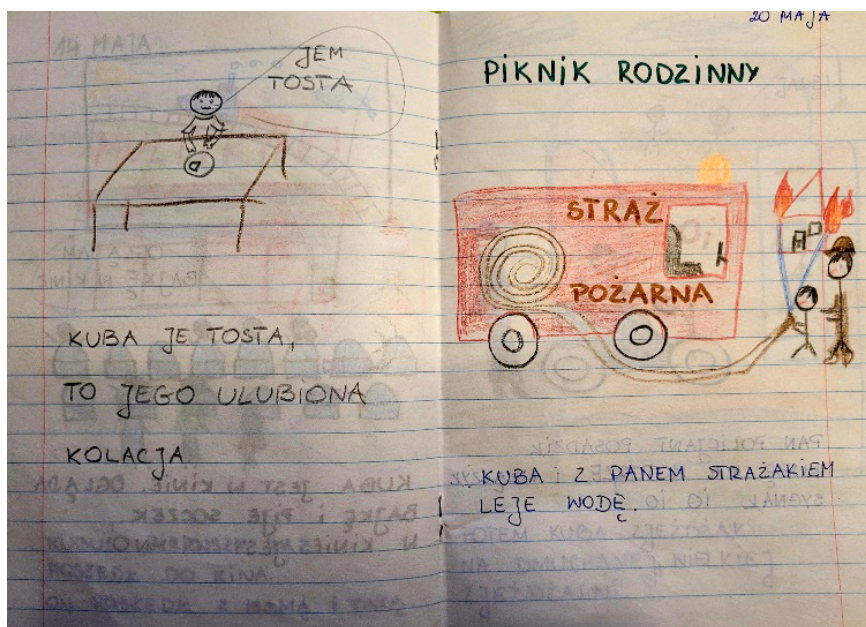 14 MAJA
JEM
TOSTA
KUBA JE TOSTA,
TO JEGO ULUBIONA
KOLACJA
20 MAJA
PIKNIK RODZINNY
STRAŻ
POŻARNA
KUBA Z PANEM STRAŻAKIEM
LEJE WODĘ.